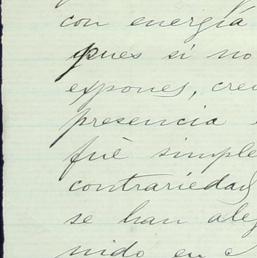 con energía
pues si no
expones, cre
presencia
fué simple
contrariedad
se han ale
nido en